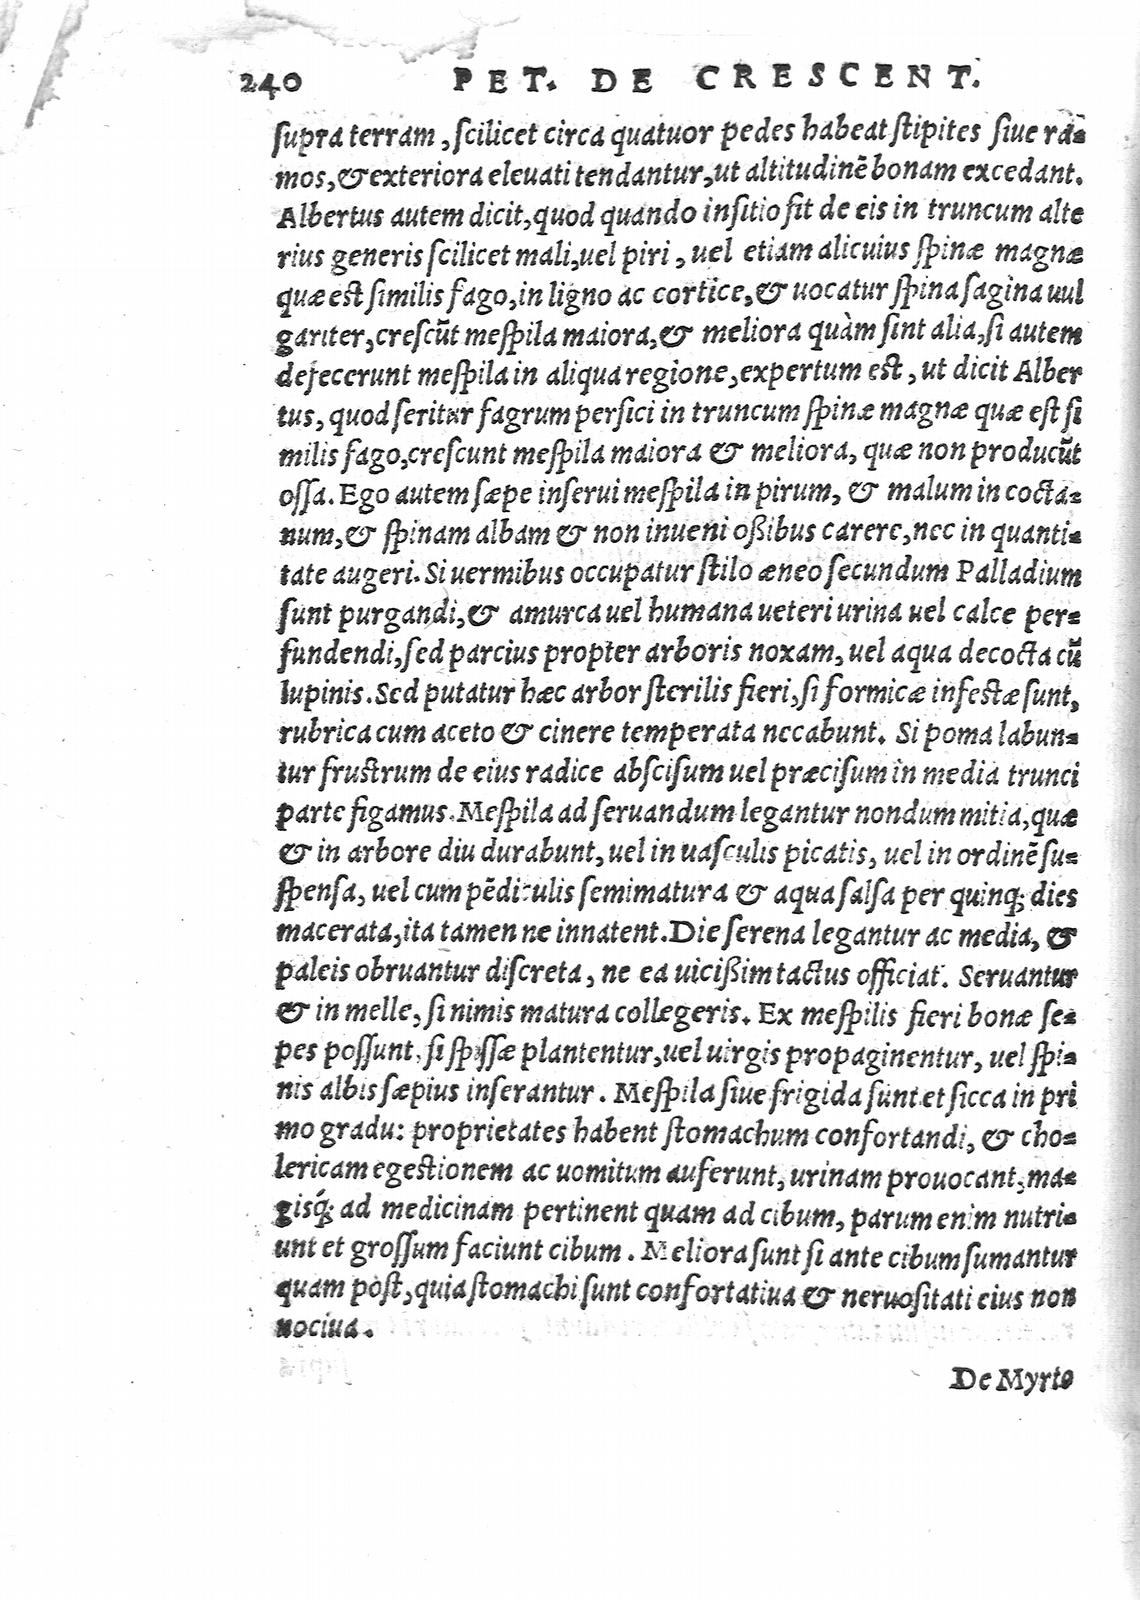 240 PET. DE CRESCENT.
ſupra terram, ſcilicet circa quatuor pedes habeat ſtipites ſiue ra-
mos, & exteriora eleuati tendantur, ut altitudinē bonam excedant.
Albertus autem dicit, quod quando inſitio fit de eis in truncum alte
rius generis ſcilicet mali, uel piri, uel etiam alicuius ſpinæ magnæ
quæ eſt ſimilis fago, in ligno ac cortice, & uocatur ſpina ſagina uul
gariter, creſcūt meſpila maiora, & meliora quàm ſint alia, ſi autem
defecerunt meſpila in aliqua regione, expertum eſt, ut dicit Alber
tus, quod ſeritur fagrum perſici in truncum ſpinæ magnæ quæ eſt ſi
milis fago, creſcunt meſpila maiora & meliora, quæ non producūt
oſſa. Ego autem ſæpe inſerui meſpila in pirum, & malum in cocta-
num, & ſpinam albam & non inueni oßibus carere, nec in quanti-
tate augeri. Si uermibus occupatur ſtilo æneo ſecundum Palladium
ſunt purgandi, & amurca uel humana ueteri urina uel calce per-
fundendi, ſed parcius propter arboris noxam, uel aqua decocta cū
lupinis. Sed putatur hæc arbor ſterilis fieri, ſi formicæ infeſtæ ſunt,
rubrica cum aceto & cinere temperata necabunt. Si poma labun-
tur fruſtrum de eius radice abſciſum uel præciſum in media trunci
parte figamus. Meſpila ad ſeruandum legantur nondum mitia, quæ
& in arbore diu durabunt, uel in uaſculis picatis, uel in ordinē ſu-
ſpenſa, uel cum pēdiculis ſemimatura & aqua ſalſa per quinq; dies
macerata, ita tamen ne innatent. Die ſerena legantur ac media, &
paleis obruantur diſcreta, ne ea uicißim tactus officiat. Seruantur
& in melle, ſi nimis matura collegeris. Ex meſpilis fieri bonæ ſe-
pes poſſunt, ſi ſpiſſæ plantentur, uel uirgis propaginentur, uel ſpi-
nis albis ſæpius inſerantur. Meſpila ſiue frigida ſunt et ſicca in pri
mo gradu: proprietates habent ſtomachum confortandi, & cho-
lericam egeſtionem ac uomitum auferunt, urinam prouocant, ma-
gisq́; ad medicinam pertinent quam ad cibum, parum enim nutri-
unt et groſſum faciunt cibum. Meliora ſunt ſi ante cibum ſumantur
quam poſt, quia ſtomachi ſunt confortatiua & neruoſitati eius non
nociua.
De Myrto